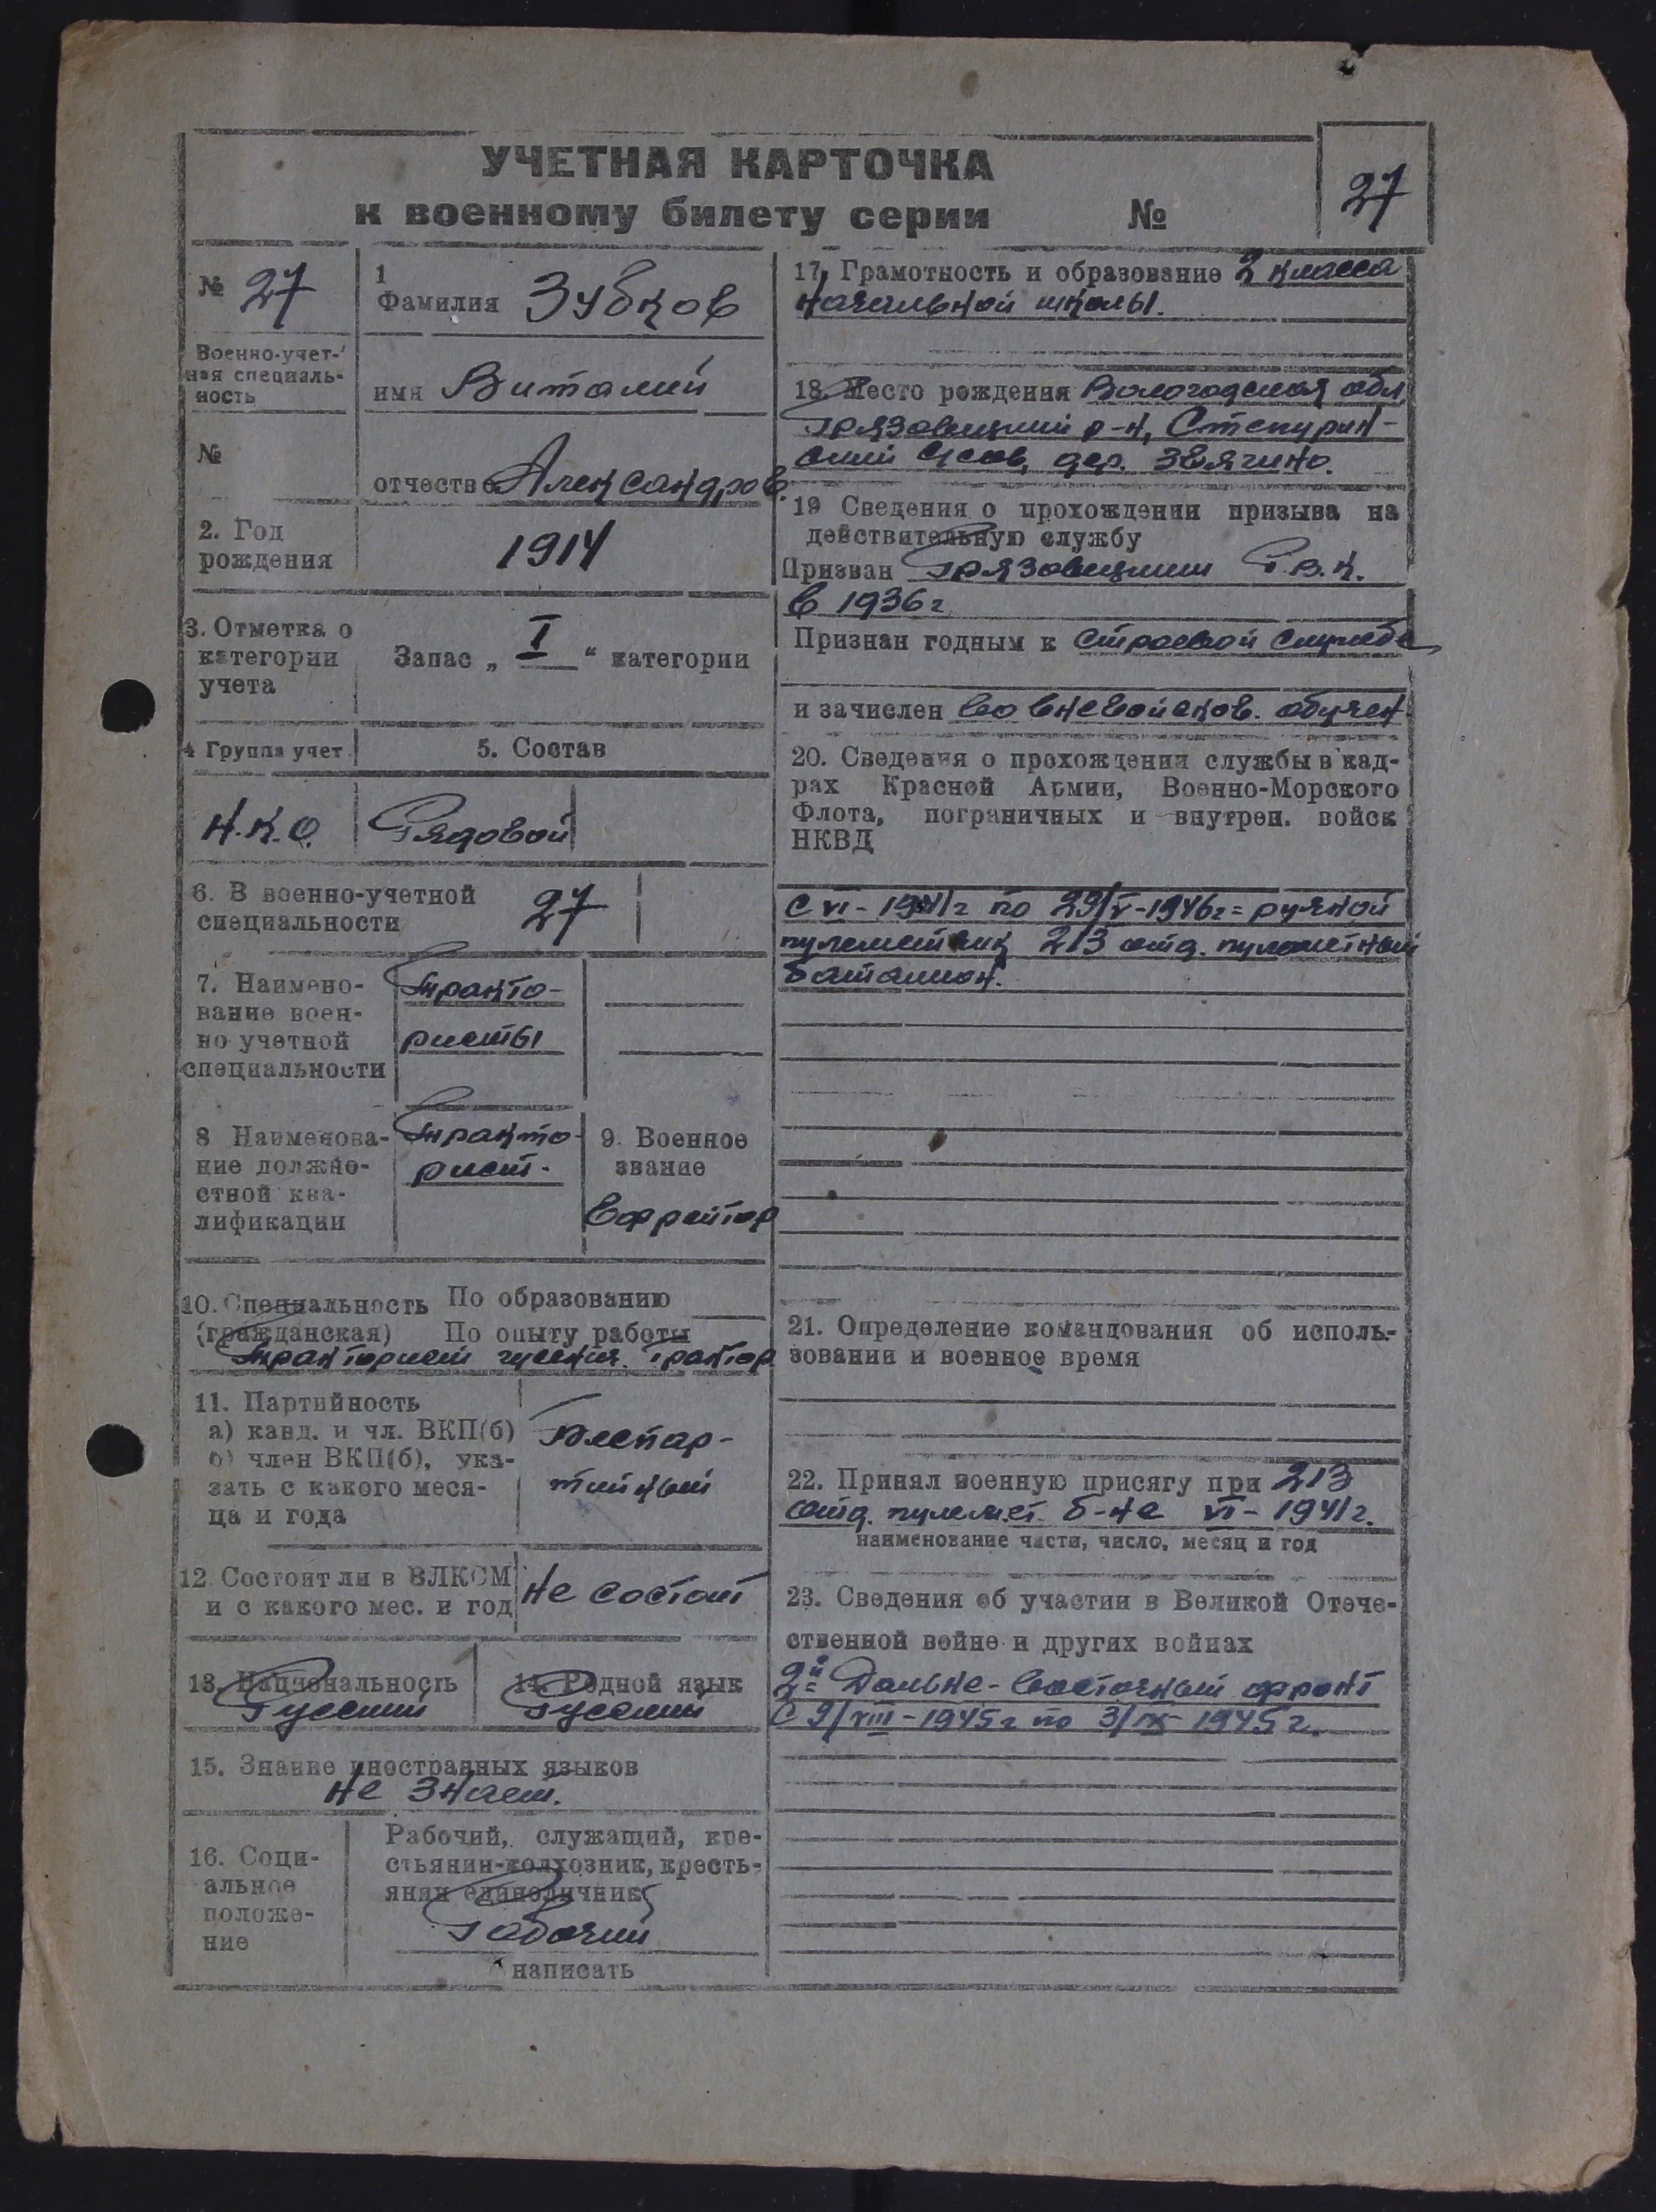 УЧЕТНАЯ КАРТОЧКА
к военному билету серии №
27
№ 27
Военно-учет-
ная специаль-
ность
№
1
Фамилия Зубков
имя Виталий
отчество Александров.
2. Год
рождения
1914
3. Отметка о
категории
учета
Запас „ I “ категории
4 Группа учет.
5. Состав
Н.К.О.
Рядовой
6. В военно-учетной
специальности
27
7. Наимено-
вание воен-
но учетной
специальности
Тракто-
ристы
8 Наименова-
ние должно-
стной ква-
лификации
Тракто-
рист.
9. Военное
звание
Ефрейтор
10. Специальность По образованию
(гражданская) По опыту работы
Тракторист гусенич. трактор
11. Партийность
а) канд. и чл. ВКП(б)
б) член ВКП(б), ука-
зать с какого меся-
ца и года
Беспар-
тийный
12 Состоит ли в ВЛКСМ
и с какого мес. и год
не состоит
13. Национальность
Русский
14. Родной язык
Русский
15. Знание иностранных языков
не знает.
16. Соци-
альное
положе-
ние
Рабочий, служащий, кре-
стьянин-колхозник, кресть-
янин единоличник
Рабочий
написать
17, Грамотность и образование 2 класса
начальной школы.
18. Место рождения Вологодская обл
Грязовецкий р-н, Степурин-
ский с/сов, дер. Звягино.
19 Сведения о прохождении призыва на
действительную службу
Призван Грязовецким Р.В.К.
в 1936г
Признан годным к строевой службе
и зачислен во вневойсков. обучен.
20. Сведения о прохождении службы в кад-
рах Красной Армии, Военно-Морского
Флота, пограничных и внутрен. войск
НКВД
С VI-1941г по 29/V-1946г= ручной
пулеметчик 213 отд. пулеметный
батальон.
21. Определение командования об исполь-
зовании и военное время
22. Принял военную присягу при 213
отд. пулемет. б-не VI-1941г.
наименование части, число, месяц и год
23. Сведения об участии в Великой Отече-
ственной войне и других войнах
2й Дальне-Восточный фронт
С 9/VIII-1945г по 3/IX-1945г.